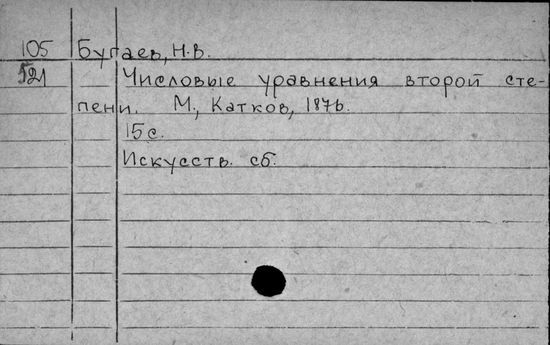 105 Бугаев, Н.В.
521 Числовые уравнения второй сте-
пени. М., Катков, 1876.
15 с.
Искусств. сб.